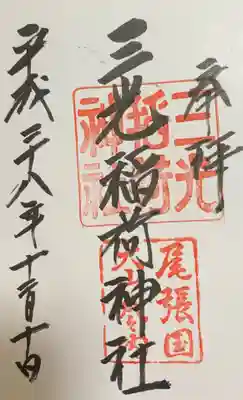 奉拝
三光稲荷神社
平成二十八年十二月十日
三光
稲荷
神社
尾張国